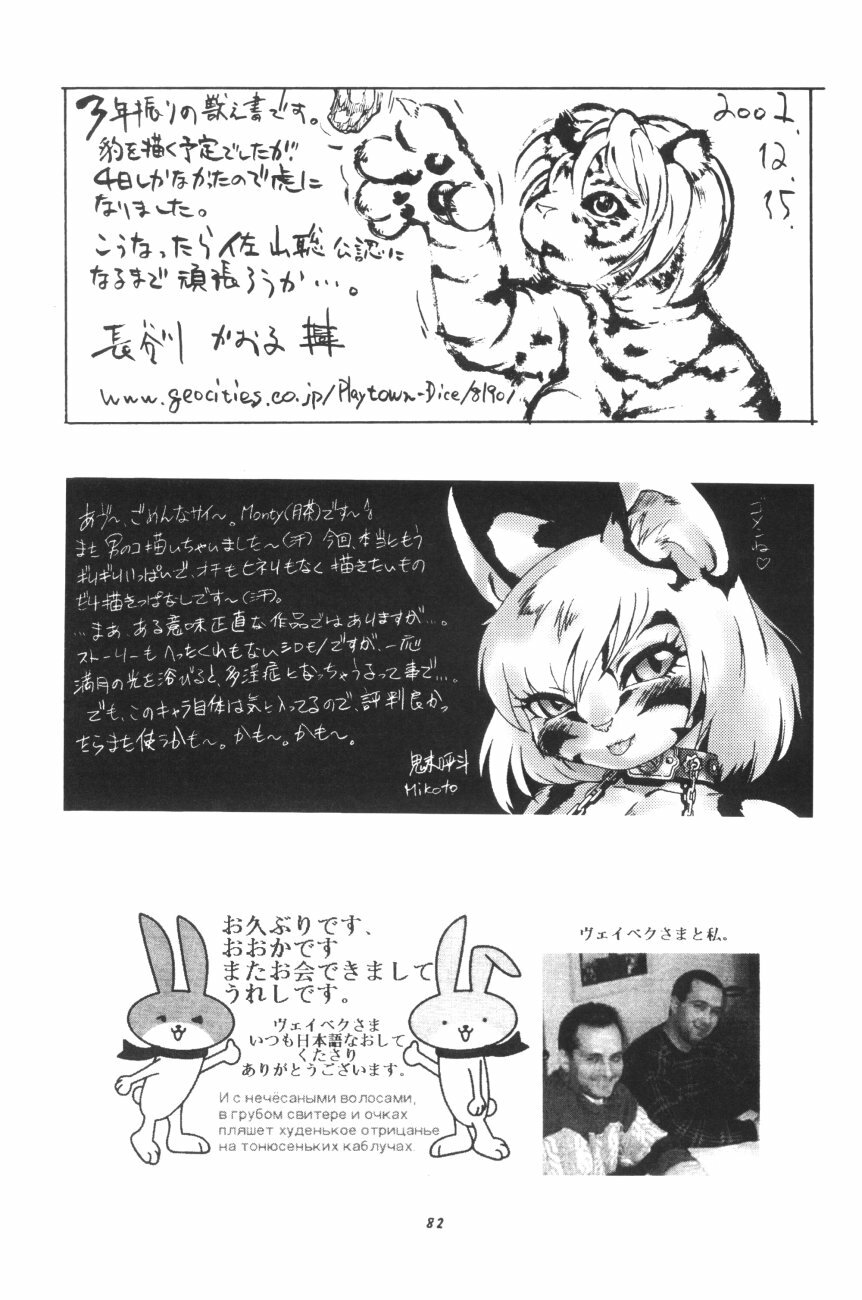 3年振りの獣え書です。
豹を描く予定でしたが
4日しかなかたので虎に
なりました。
こうなったら佐山聡公認に
なるまで頑張ろうか…。
長谷川 かおる
www.geocities.co.jp/Playtown-Dice/8190/
2002.
12.
15.
あヴ〜、ごめんなサイ〜。Monty(月茶)です〜
また男のコ描いちゃいました〜(汗) 今回、本当にもう
ギリギリいっぱいで、オチもヒネリもなく描きたいもの
だけ描きっぱなしです〜(汗)。
…まあ、ある意味正直な作品ではありますが…。
ストーリーもへったくれもないシロモノですが、一応
満月の光を浴びると、多淫症となっちゃうって事で…。
でも、このキャラ自体は気に入ってるので、評判良かっ
たらまた使うかも〜。かも〜。かも〜。
Mikoto
ゴメンね♡
お久ぶりです、
おおかです
またお会できまして
うれしです。
ヴェイベクさま
いつも日本語なおして
くたさり
ありがとうございます。
И с нечёсаными волосами,
в грубом свитере и очках
пляшет худенькое отрицанье
на тонюсеньких каблучах.
ヴェイベクさまと私。
82